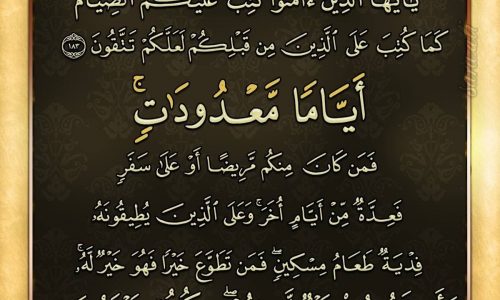 يَٰٓأَيُّهَا ٱلَّذِينَ ءَامَنُوا۟ كُتِبَ عَلَيْكُمُ ٱلصِّيَامُ
كَمَا كُتِبَ عَلَى ٱلَّذِينَ مِن قَبْلِكُمْ لَعَلَّكُمْ تَتَّقُونَ ١٨٣
أَيَّامًا مَّعْدُودَٰتٍ ۚ
فَمَن كَانَ مِنكُم مَّرِيضًا أَوْ عَلَىٰ سَفَرٍ
فَعِدَّةٌ مِّنْ أَيَّامٍ أُخَرَ ۚ وَعَلَى ٱلَّذِينَ يُطِيقُونَهُۥ
فِدْيَةٌ طَعَامُ مِسْكِينٍ ۖ فَمَن تَطَوَّعَ خَيْرًا فَهُوَ خَيْرٌ لَّهُۥ ۚ